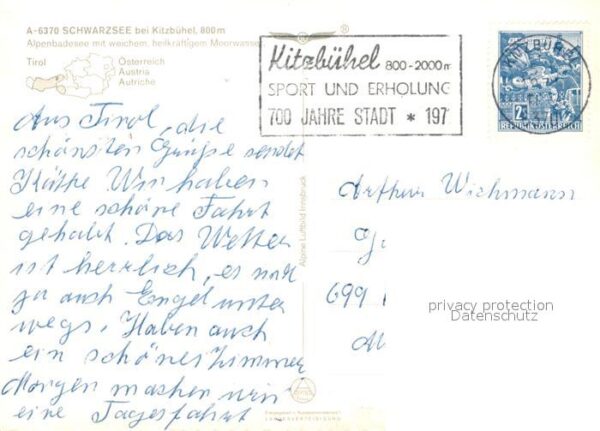 A-6370 SCHWARZSEE bei Kitzbühel, 800 m
Alpenbadesee mit weichem, heilkräftigem Moorwasser
Tirol
Österreich
Austria
Autriche
Kitzbühel 800-2000 m
SPORT UND ERHOLUNG
700 JAHRE STADT * 197
KITZBÜHEL
2
REPUBLIK ÖSTERREICH
Aus Tirol, die
schönsten Grüße sendet
Käthe Wir haben
eine schöne Fahrt
gehabt. Das Wetter
ist herrlich, es
ja auch Engel unter
wegs. Haben auch
ein schönes Zimmer
Morgen machen wir
eine Tagesfahrt
Alpine Luftbild Innsbruck
Arthur Wichmann
699
privacy protection
Datenschutz